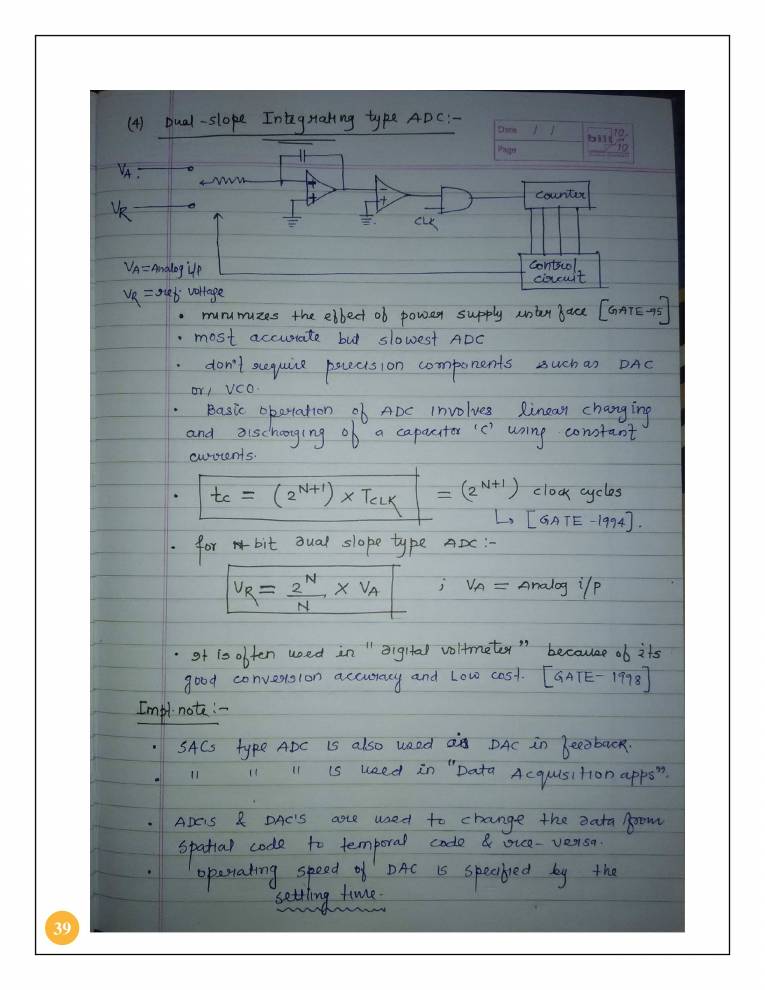 (4) Dual-slope Integrating type ADC:-
Date / /
Page
bill 10 10
VA
VR
CLK
counter
control circuit
VA = Analog i/p
VR = ref. voltage
• minimizes the effect of power supply interface [GATE-95]
• most accurate but slowest ADC
• don't require precision components such as DAC
or, VCO.
• Basic operation of ADC involves linear charging
and discharging of a capacitor 'C' using constant
currents.
• tc = (2^{N+1}) × TCLK = (2^{N+1}) clock cycles
↳ [GATE -1994].
• for N bit dual slope type ADC:-
VR = 2^N/N × VA ; VA = Analog i/p
• It is often used in "digital voltmeter" because of its
good conversion accuracy and Low cost. [GATE-1998]
Impt. note:-
• SACs type ADC is also used as DAC in feedback.
• " " " is used in "Data Acquisition apps".
• ADC's & DAC's are used to change the data from
spatial code to temporal code & vice-versa.
• operating speed of DAC is specified by the
settling time.
39